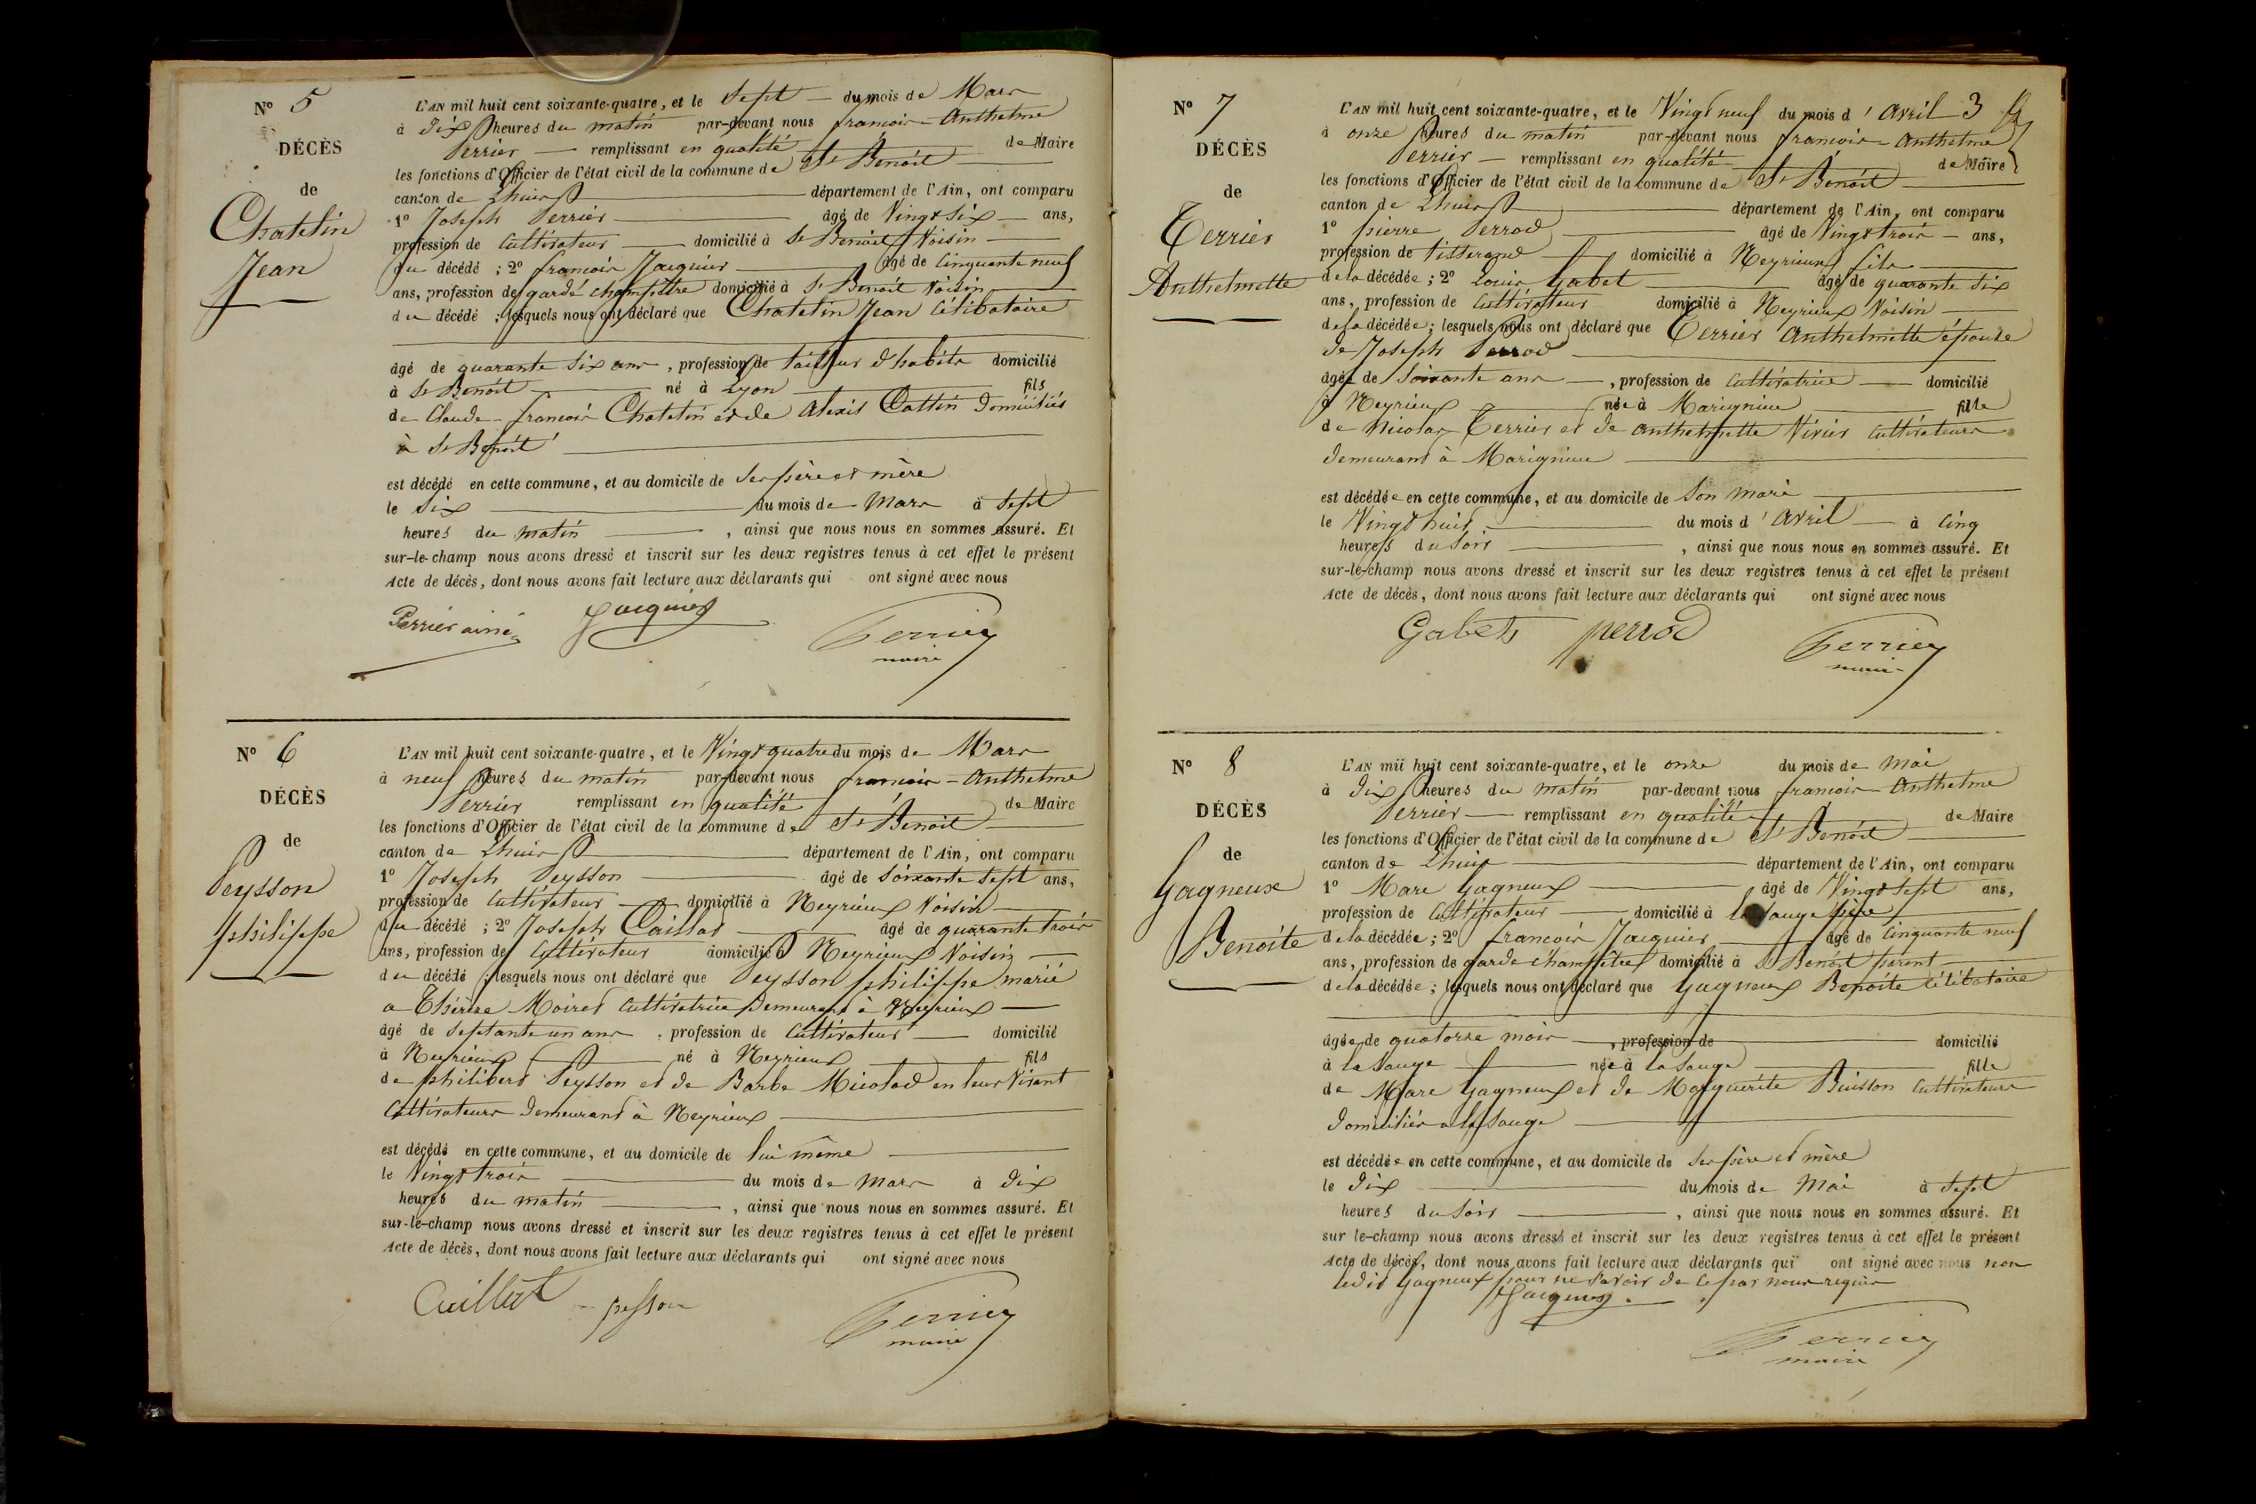 N° 5
DÉCÈS
de
Chatelin
Jean
L'AN mil huit cent soixante-quatre, et le Sept du mois de Mars
à dix heures du matin par-devant nous françois-Anthelme
Perrier remplissant en qualité de Maire
les fonctions d'Officier de l'état civil de la commune de St Benoit
canton de Lhuis département de l'Ain, ont comparu
1° Joseph Perrier âgé de Vingt six ans,
profession de Cultivateur domicilié à St Benoit Voisin
du décédé ; 2° françois Jacquier âgé de Cinquante neuf
ans, profession de garde champêtre domicilié à St Benoit Voisin
du décédé ; lesquels nous ont déclaré que Chatelin Jean Célibataire
âgé de quarante six ans, profession de tailleur d'habits domicilié
à St Benoit né à Lyon fils
de Claude-françois Chatelin et de Alexis Cattin Domiciliés
à St Benoit
est décédé en cette commune, et au domicile de Ses père et mère
le Six du mois de Mars à Sept
heures du matin, ainsi que nous nous en sommes assuré. Et
sur-le-champ nous avons dressé et inscrit sur les deux registres tenus à cet effet le présent
Acte de décès, dont nous avons fait lecture aux déclarants qui ont signé avec nous
Perrier ainé Jacquier Perrier
maire
N° 6
DÉCÈS
de
Peysson
philippe
L'AN mil huit cent soixante-quatre, et le Vingt quatre du mois de Mars
à neuf heures du matin par-devant nous françois-Anthelme
Perrier remplissant en qualité de Maire
les fonctions d'Officier de l'état civil de la commune de St Benoit
canton de Lhuis département de l'Ain, ont comparu
1° Joseph Peysson âgé de Soixante Sept ans,
profession de Cultivateur domicilié à Neyrieux Voisin
du décédé ; 2° Joseph Caillot âgé de quarante trois
ans, profession de Cultivateur domicilié à Neyrieux Voisin
du décédé ; lesquels nous ont déclaré que Peysson philippe marié
a Thérèse Moiret Cultivatrice Demeurant à Neyrieux
âgé de Septante un ans, profession de Cultivateur domicilié
à Neyrieux né à Neyrieux fils
de philibert Peysson et de Barbe Micolod en leur Vivant
Cultivateurs Demeurant à Neyrieux
est décédé en cette commune, et au domicile de lui même
le Vingt trois du mois de Mars à Dix
heures du matin, ainsi que nous nous en sommes assuré. Et
sur-le-champ nous avons dressé et inscrit sur les deux registres tenus à cet effet le présent
Acte de décès, dont nous avons fait lecture aux déclarants qui ont signé avec nous
Caillot peysson Perrier
maire
N° 7
DÉCÈS
de
Terrier
Anthelmette
L'AN mil huit cent soixante-quatre, et le Vingt neuf du mois d'Avril 3
à onze heures du matin par-devant nous françois-Anthelme
Perrier remplissant en qualité de Maire
les fonctions d'Officier de l'état civil de la commune de St Benoit
canton de Lhuis département de l'Ain, ont comparu
1° pierre Perrod âgé de Vingt trois ans,
profession de tisserand domicilié à Neyrieux fils
de la décédée ; 2° Louis Gabet âgé de quarante six
ans, profession de Cultivateur domicilié à Neyrieux Voisin
de la décédée ; lesquels nous ont déclaré que Terrier Anthelmette épouse
de Joseph Perrod
âgée de Soixante ans, profession de Cultivatrice domicilié
à Neyrieux née à Marignieu fille
de Nicolas Terrier et de Anthelmette Vivier Cultivateurs
Demeurant à Marignieu
est décédée en cette commune, et au domicile de Son mari
le Vingt huit du mois d'Avril à Cinq
heures du Soir, ainsi que nous nous en sommes assuré. Et
sur-le-champ nous avons dressé et inscrit sur les deux registres tenus à cet effet le présent
Acte de décès, dont nous avons fait lecture aux déclarants qui ont signé avec nous
Gabet perrod Perrier
maire
N° 8
DÉCÈS
de
Gagneux
Benoite
L'AN mil huit cent soixante-quatre, et le onze du mois de Mai
à Dix heures du matin par-devant nous françois-Anthelme
Perrier remplissant en qualité de Maire
les fonctions d'Officier de l'état civil de la commune de St Benoit
canton de Lhuis département de l'Ain, ont comparu
1° Marc Gagneux âgé de Vingt Sept ans,
profession de Cultivateur domicilié à la Sauge père
de la décédée ; 2° françois Jacquier âgé de Cinquante neuf
ans, profession de garde champêtre domicilié à St Benoit parent
de la décédée ; lesquels nous ont déclaré que Gagneux Benoite Célibataire
âgée de quatorze mois, profession de domicilié
à la Sauge née à la Sauge fille
de Marc Gagneux et de Marguerite Buisson Cultivateurs
Domiciliés a la Sauge
est décédée en cette commune, et au domicile de Ses père et mère
le Dix du mois de Mai à Sept
heures du Soir, ainsi que nous nous en sommes assuré. Et
sur-le-champ nous avons dressé et inscrit sur les deux registres tenus à cet effet le présent
Acte de décès, dont nous avons fait lecture aux déclarants qui ont signé avec nous non
ledit Gagneux pour ne Savoir de ce par nous requis
Jacquier
Perrier
maire